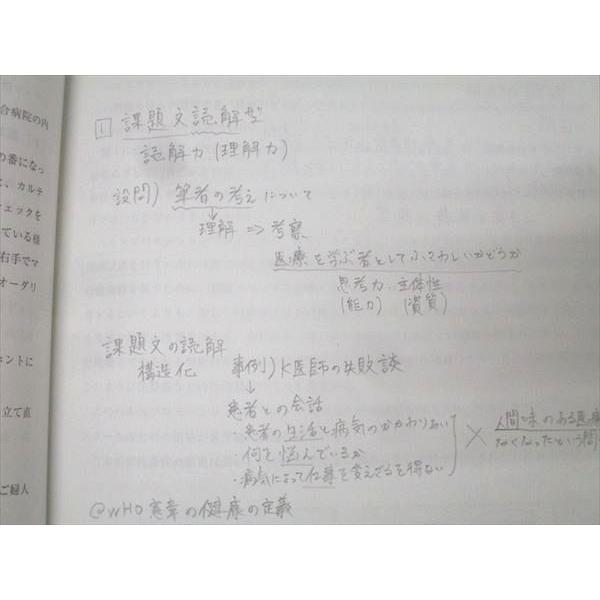 合病院の内
の番になっ
、カルテ
ェックを
ている様
右手でマ
オーダリ
ントに
立て直
ご婦人
1 課題文読解型
読解力(理解力)
設問) 筆者の考えについて
理解 ⇒ 考察
医療を学ぶ者としてふさわしいかどうか
思考力 主体性
(能力) (資質)
課題文の読解
構造化 事例) K医師の失敗談
患者との会話
患者の生活と病気のかかわりあい
何を悩んでいるか
・病気によって仕事を変えざるを得ない
× 人間味のある医療
なくなったという問
@WHO憲章の健康の定義